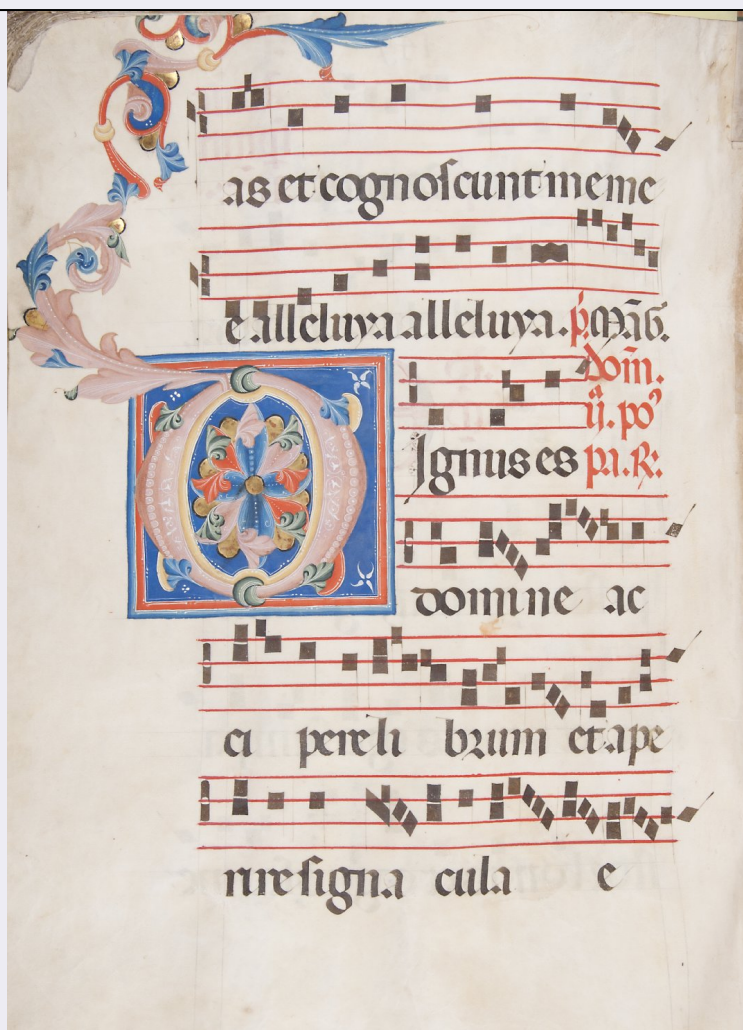 as et cognoscunt me me
e alleluya alleluya. p̄. Māḡ.
dom̄.
Ignus es ij. po⁹
pa. R:
domine ac
ci pere li brum et ape
rire signa cula e